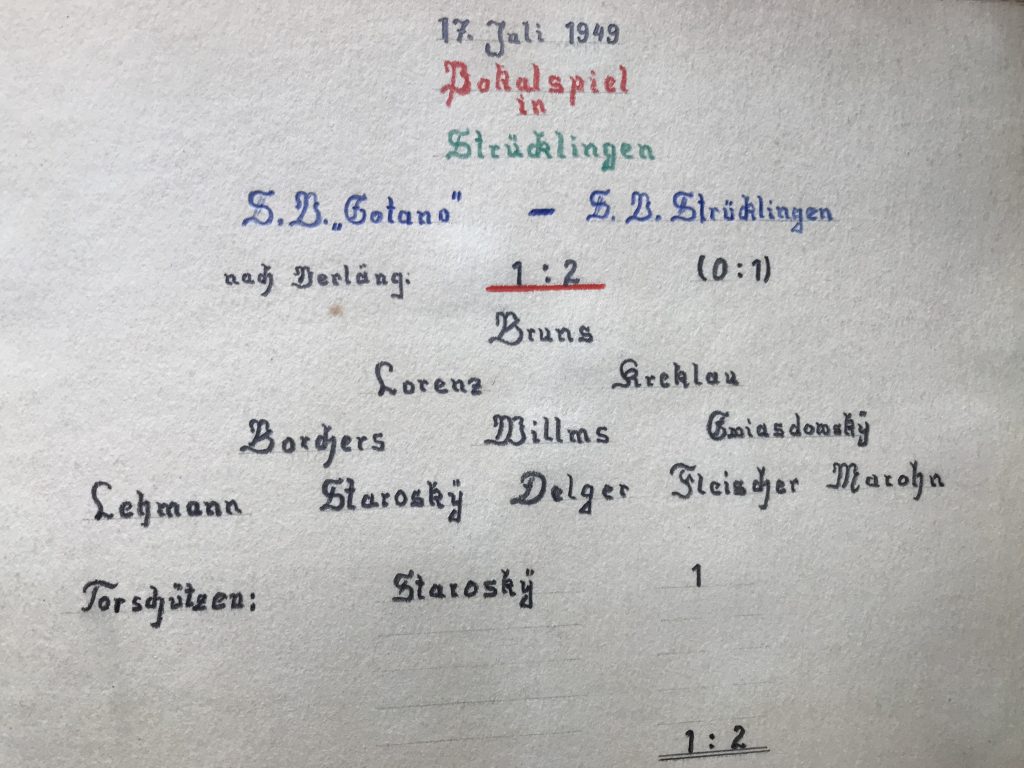 17. Juli 1949
Pokalspiel
in
Strücklingen
S.V. „Gotano" - S.V. Strücklingen
nach Verläng. 1 : 2 (0 : 1)
Bruns
Lorenz Kreklau
Borchers Willms Gwiasdowskÿ
Lehmann Staroskÿ Delger Fleischer Marohn
Torschützen: Staroskÿ 1
1 : 2